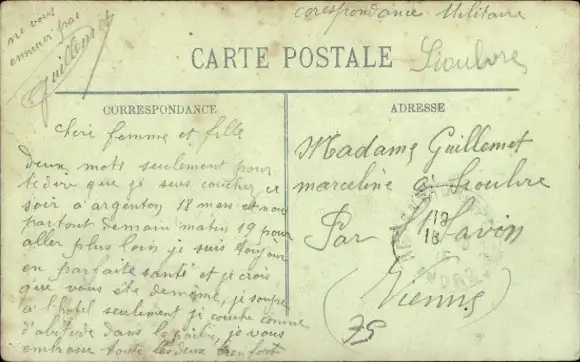 corespondance Militaire
ne vous
ennuier pas
Guillemet
CARTE POSTALE
Lioulvre
CORRESPONDANCE
ADRESSE
Chéri femme et fille
deux mots seulement pour
te dire que je suis coucher ce
soir a argenton 18 mars et nou
partout demain matin 19 pour
aller plus loin je suis toujour
en parfaite santé et je crois
que vous éte de même, je soupe
a l'hotel seulement je couche comme
d'abitude dans la paile, je vous
embrasse toute les deux bien fort
Madame Guillemet
marceline à Lioulvre
Par St Savin
(Vienne)
75